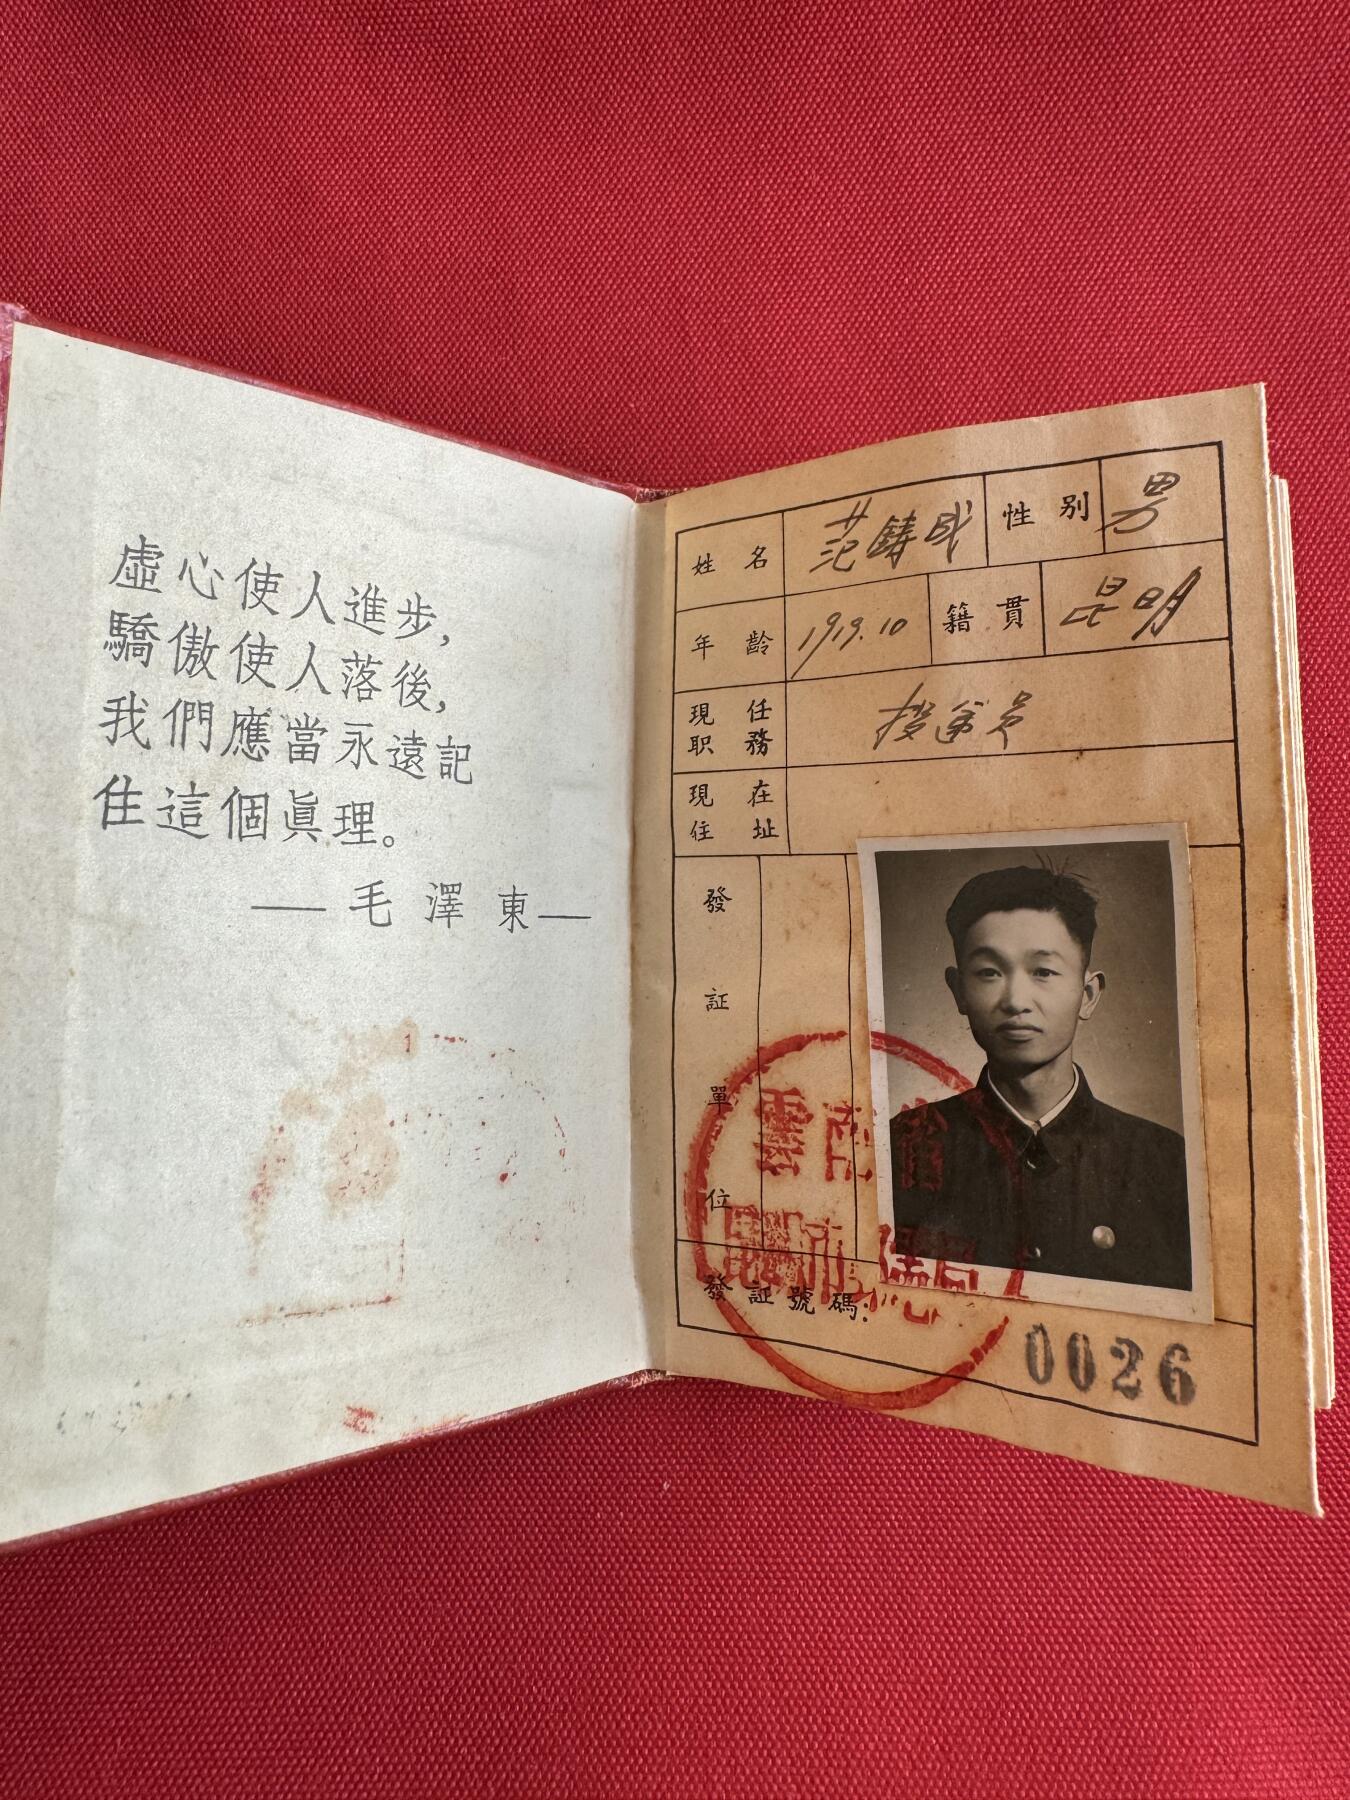 虛心使人進步,
驕傲使人落後,
我們應當永遠記
住這個眞理。
——毛澤東—
姓名 范鑄成 性別 男
年齡 1919.10 籍貫 昆明
現任职務 投递員
現在住址
發証單位
發証號碼: 0026
雲南省
昆明市 局